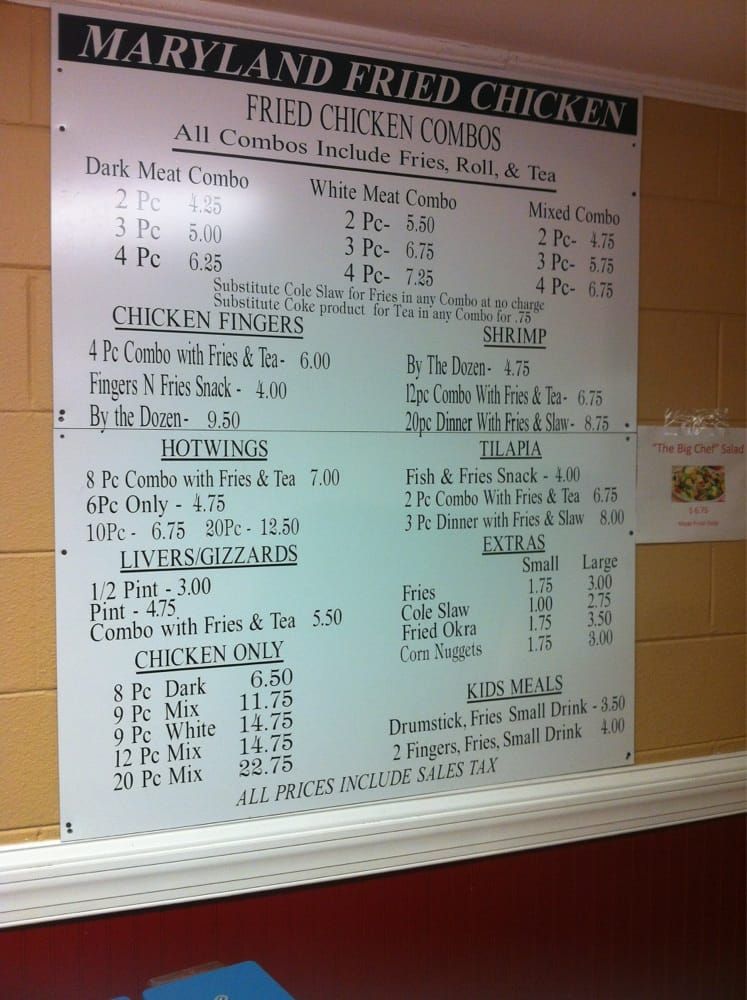 MARYLAND FRIED CHICKEN
FRIED CHICKEN COMBOS
All Combos Include Fries, Roll, & Tea
Dark Meat Combo
2 Pc 4.25
3 Pc 5.00
4 Pc 6.25
White Meat Combo
2 Pc- 5.50
3 Pc- 6.75
4 Pc- 7.25
Mixed Combo
2 Pc- 4.75
3 Pc- 5.75
4 Pc- 6.75
Substitute Cole Slaw for Fries in any Combo at no charge
Substitute Coke product for Tea in any Combo for .75
CHICKEN FINGERS
4 Pc Combo with Fries & Tea- 6.00
Fingers N Fries Snack - 4.00
By the Dozen- 9.50
SHRIMP
By The Dozen- 4.75
12pc Combo With Fries & Tea- 6.75
20pc Dinner With Fries & Slaw- 8.75
HOTWINGS
8 Pc Combo with Fries & Tea 7.00
6Pc Only - 4.75
10Pc - 6.75 20Pc - 12.50
TILAPIA
Fish & Fries Snack - 4.00
2 Pc Combo With Fries & Tea 6.75
3 Pc Dinner with Fries & Slaw 8.00
LIVERS/GIZZARDS
1/2 Pint - 3.00
Pint - 4.75
Combo with Fries & Tea 5.50
EXTRAS
Small Large
Fries 1.75 3.00
Cole Slaw 1.00 2.75
Fried Okra 1.75 3.50
Corn Nuggets 1.75 3.00
CHICKEN ONLY
8 Pc Dark 6.50
9 Pc Mix 11.75
9 Pc White 14.75
12 Pc Mix 14.75
20 Pc Mix 22.75
KIDS MEALS
Drumstick, Fries Small Drink - 3.50
2 Fingers, Fries, Small Drink 4.00
ALL PRICES INCLUDE SALES TAX
"The Big Chef" Salad
$ 6.75